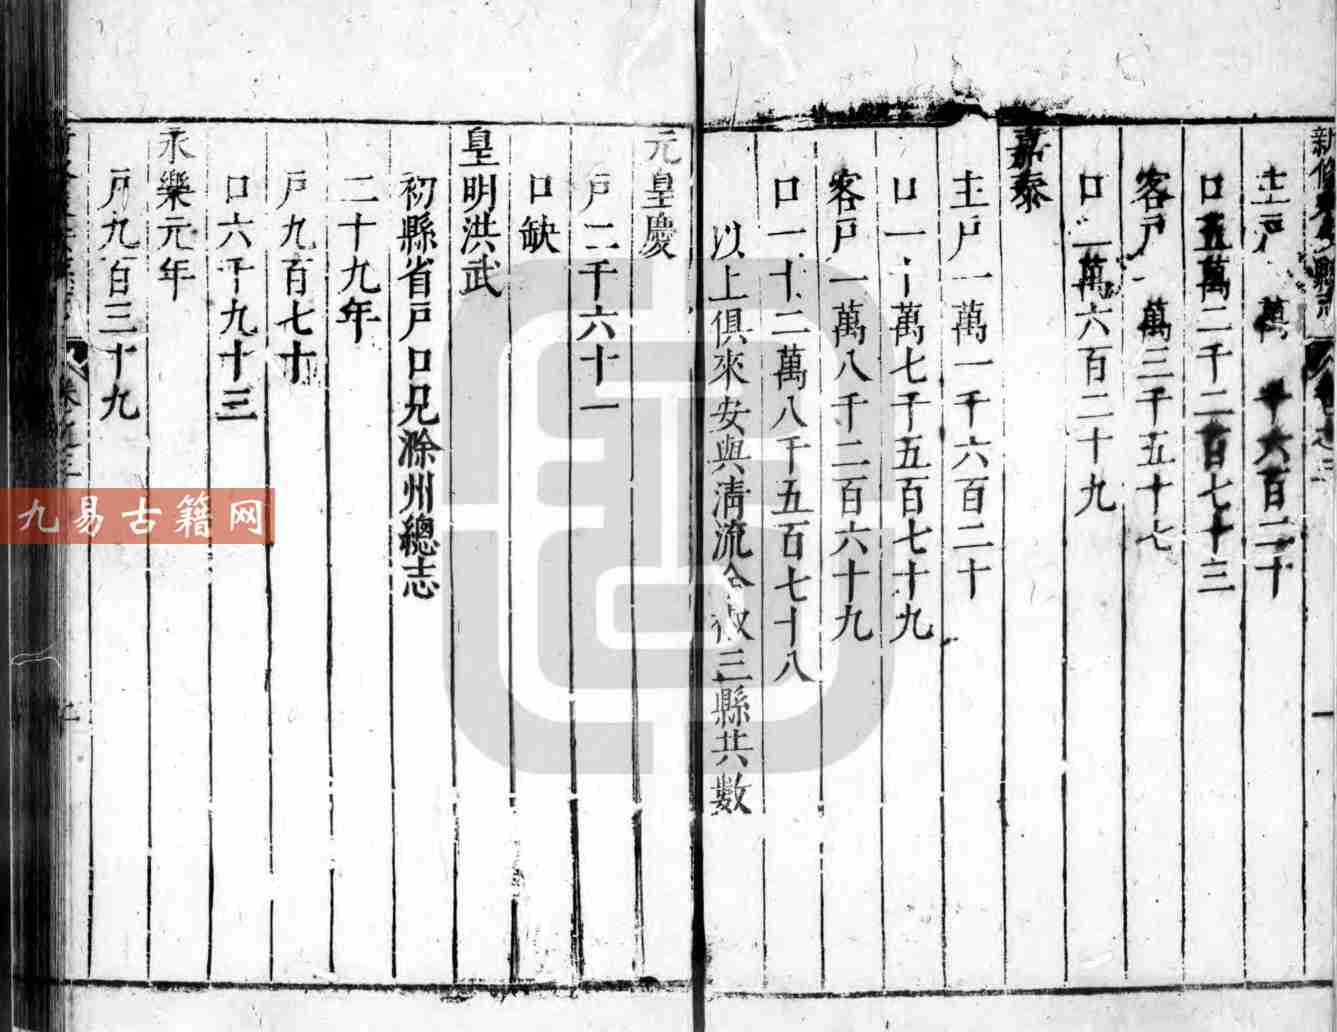 主戶 萬 千六百二十
口五萬二千二百七十三
客戶 萬三千五十七
口二萬六百二十九
嘉泰
主戶一萬一千六百二十
口一十萬七千五百七十九
客戶一萬八千二百六十九
口一十二萬八千五百七十八
以上俱來安與清流全椒三縣共數
元皇慶
戶二千六十一
口缺
皇明洪武
初縣省戶口見滁州總志
二十九年
戶九百七十
口六千九十三
永樂元年
戶九百三十九
九易古籍网